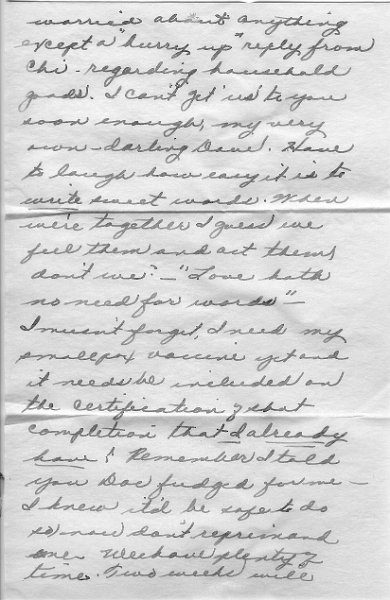 worried about anything
except a "hurry up" reply from
Chi - regarding household
goods. I can't get us to you
soon enough, my very
own - darling Dave! Have
to laugh how easy it is to
write sweet words. When
we're together I guess we
feel them and act them,
don't we? - "Love hath
no need for words" -
I musn't forget, I need my
smallpox vaccine yet and
it needs be included on
the certification of shot
completion that I already
have! Remember I told
you Doc fudged for me -
I knew it'd be safe to do
so now don't reprimand
me. We have plenty of
time. Two weeks will